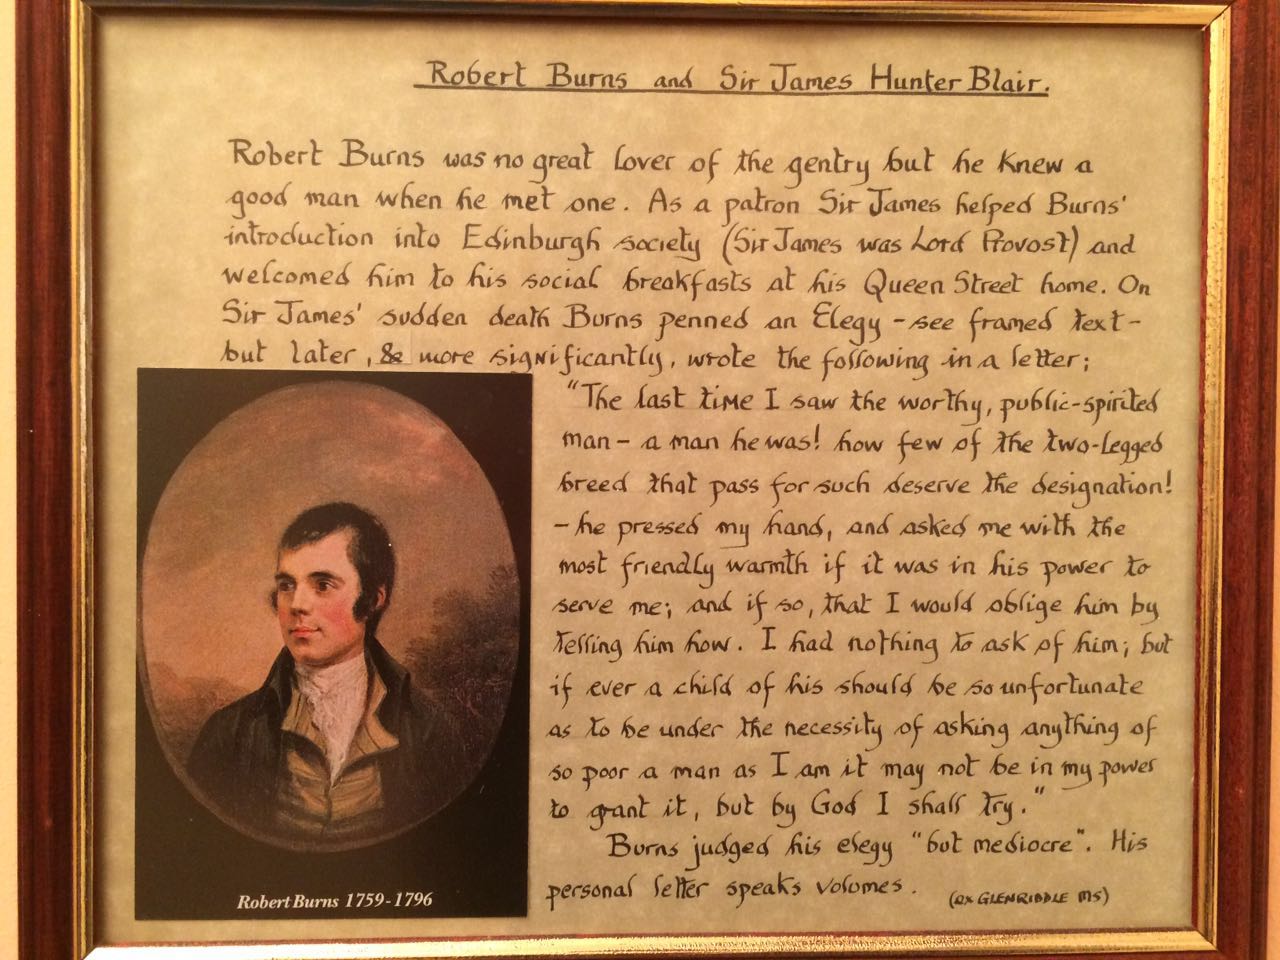 Robert Burns and Sir James Hunter Blair.
Robert Burns was no great lover of the gentry but he knew a
good man when he met one. As a patron Sir James helped Burns'
introduction into Edinburgh society (Sir James was Lord Provost) and
welcomed him to his social breakfasts at his Queen Street home. On
Sir James' sudden death Burns penned an Elegy - see framed text -
but later, & more significantly, wrote the following in a letter;
"The last time I saw the worthy, public-spirited
man - a man he was! how few of the two-legged
breed that pass for such deserve the designation!
- he pressed my hand, and asked me with the
most friendly warmth if it was in his power to
serve me; and if so, that I would oblige him by
telling him how. I had nothing to ask of him; but
if ever a child of his should be so unfortunate
as to be under the necessity of asking anything of
so poor a man as I am it may not be in my power
to grant it, but by God I shall try."
Burns judged his elegy "but mediocre". His
personal letter speaks volumes.
(ex GLENRIDDLE MS)
Robert Burns 1759-1796